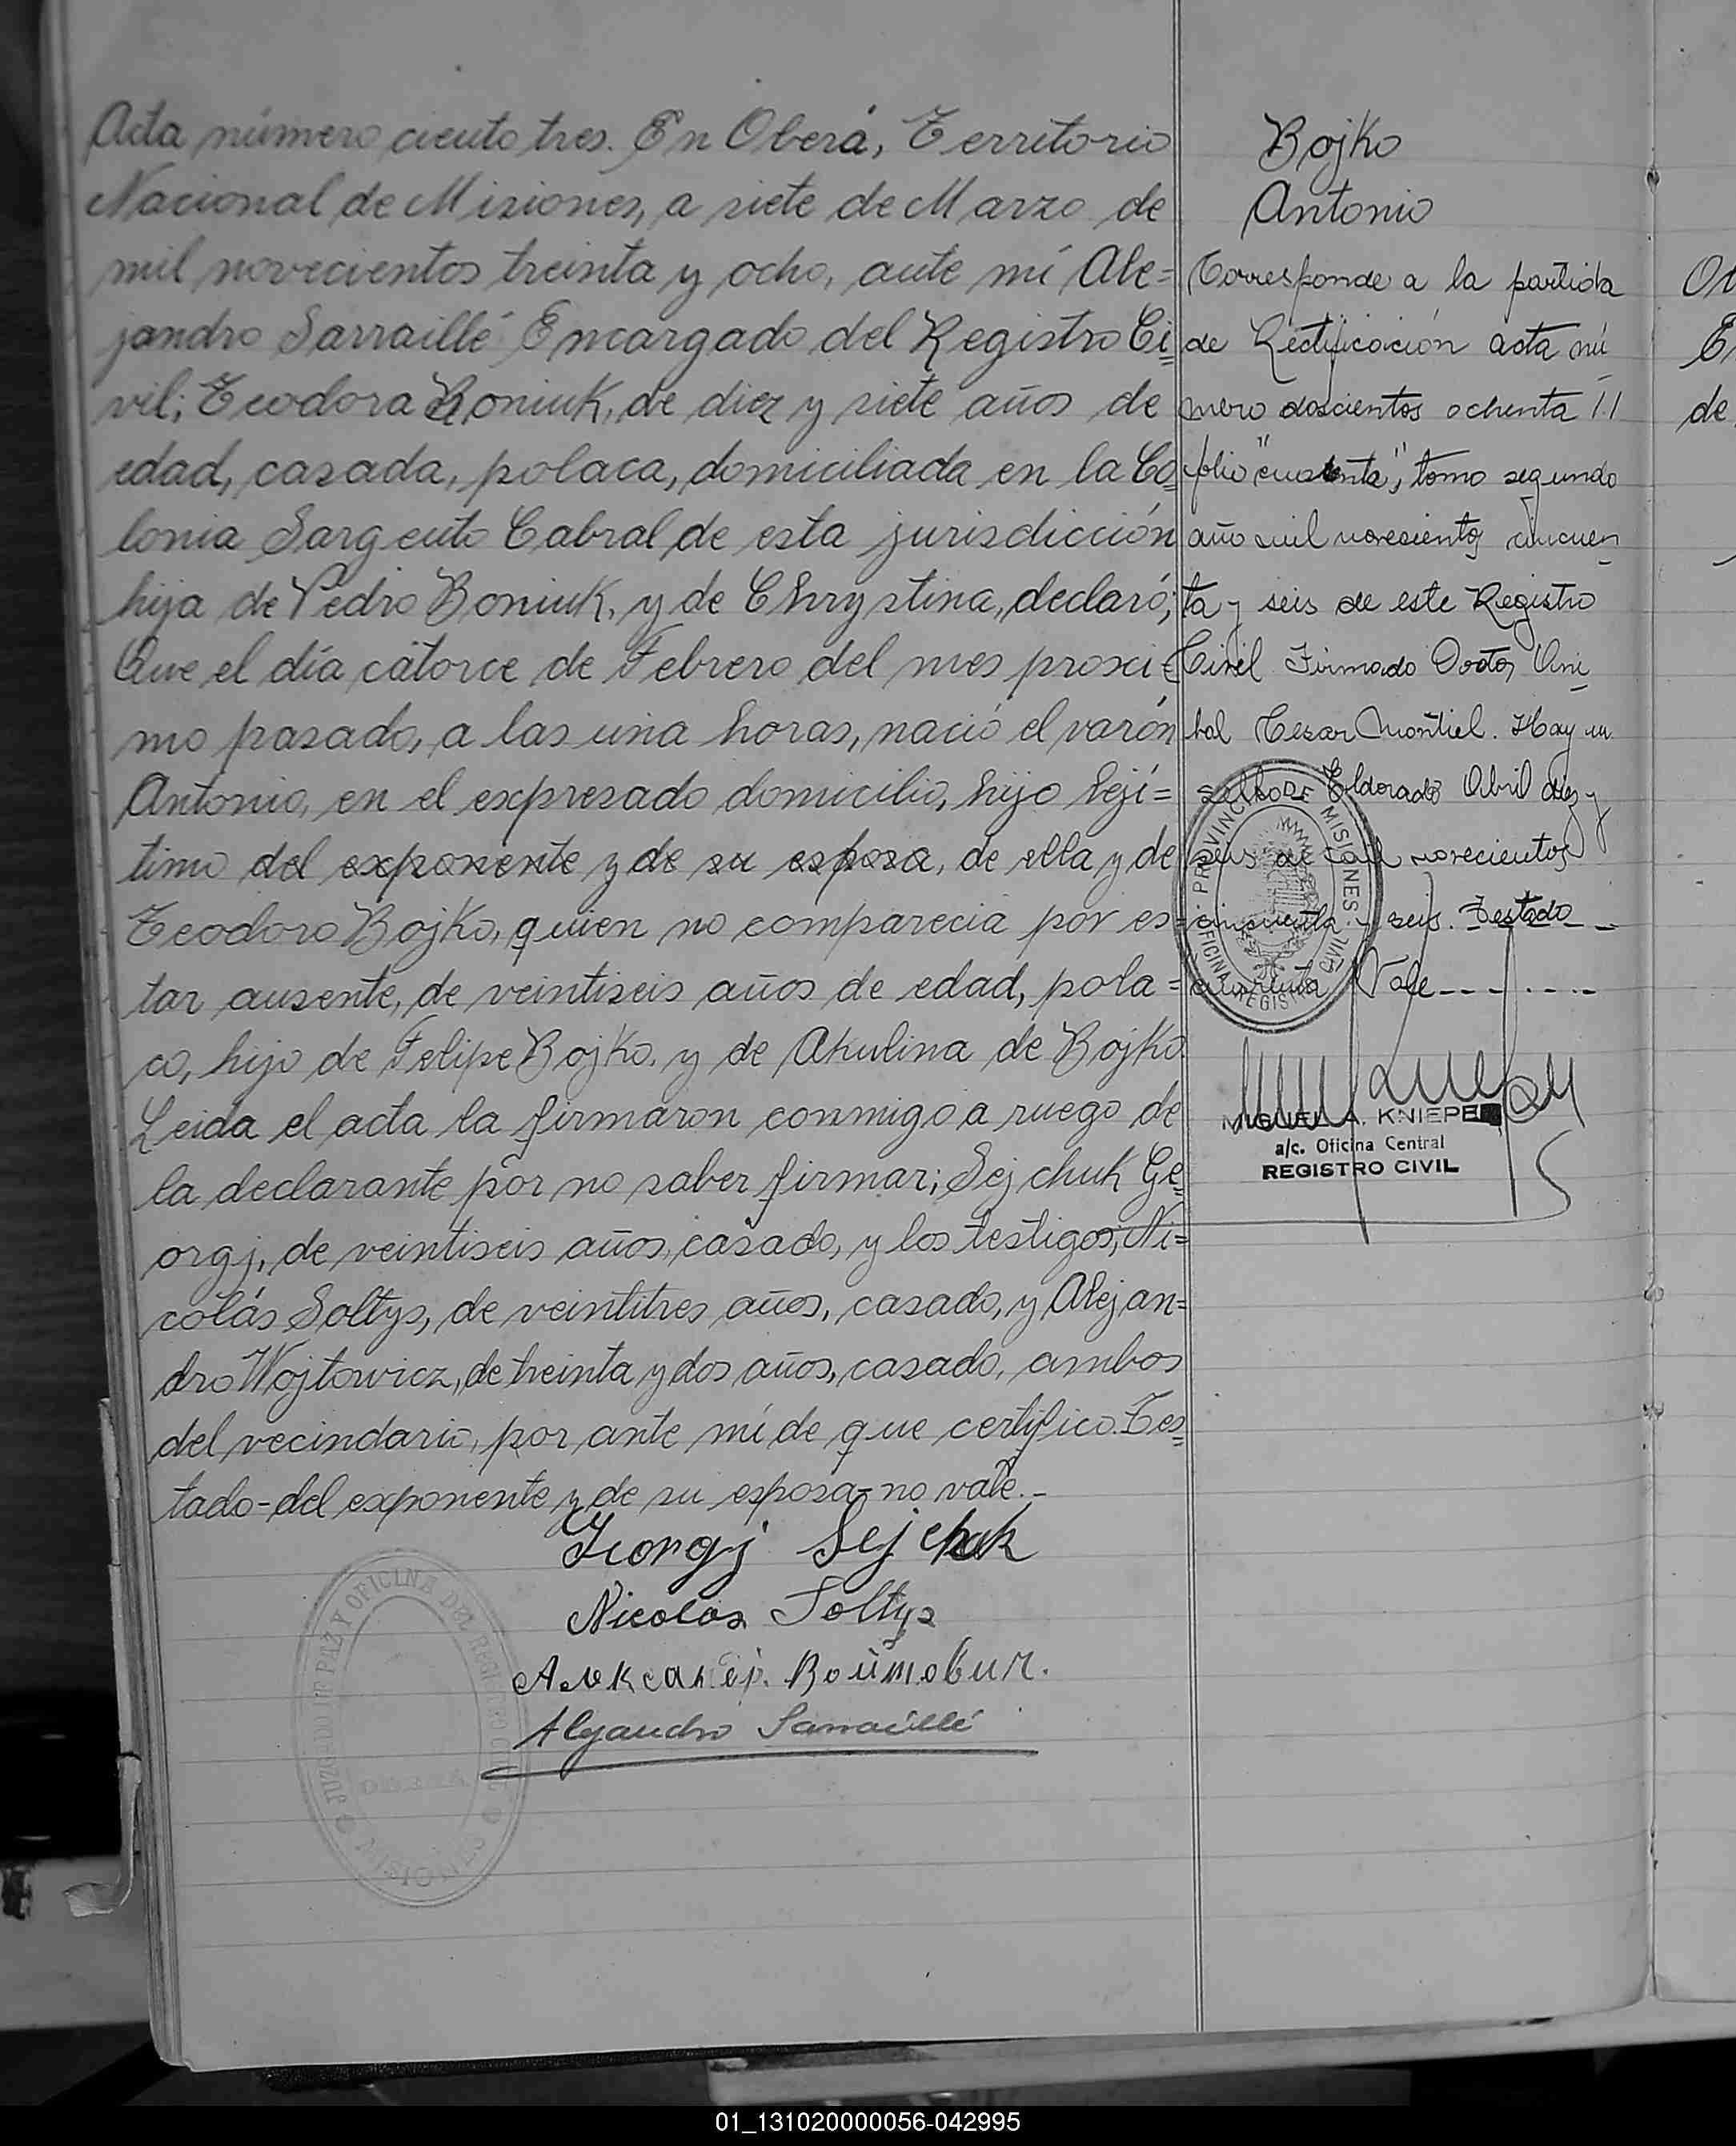 Acta número ciento tres. En Oberá, Territorio
Nacional de Misiones, a siete de Marzo de
mil novecientos treinta y ocho, ante mí Ale=
jandro Sarraillé Encargado del Registro Ci=
vil; Teodora Boniuk, de diez y siete años de
edad, casada, polaca, domiciliada en la Co=
lonia Sargento Cabral de esta jurisdicción
hija de Pedro Boniuk, y de Chrystina, declaró;
Que el día catorce de Febrero del mes proxi=
mo pasado, a las una horas, nació el varón
Antonio, en el expresado domicilio, hijo leji=
timo del exponente y de su esposa, de ella y de
Teodoro Bojko, quien no comparecia por es=
tar ausente, de veintiseis años de edad, pola=
co, hijo de Felipe Bojko, y de Akulina de Bojko.
Leida el acta la firmaron conmigo a ruego de
la declarante por no saber firmar; Sejchuk Ge=
orgj, de veintiseis años, casado, y los testigos, Ni=
colás Soltys, de veintitres años, casado, y Alejan=
dro Wojtowicz, de treinta y dos años, casado, ambos
del vecindario, por ante mí de que certifico. Tes=
tado-del exponente y de su esposa-no vale.-
Georgj Sejchuk
Nicolas Soltys
Войтович.
Alejandro Sarraillé
JUZGADO DE PAZ Y OFICINA DEL REGISTRO CIVIL
OBERA
MISIONES
Bojko
Antonio
Corresponde a la partida
de Rectificación acta nú
mero doscientos ochenta
folio "cuarenta", tomo segundo
año mil novecientos cincuen
ta y seis de este Registro
Civil Firmado Doctor Ani
bal Cesar Montiel. Hay un
sello Eldorado Abril diez y
seis de mil novecientos
cincuenta y seis. Testado
cuarenta Vale
PROVINCIA DE MISIONES
OFICINA REGISTRO CIVIL
MIGUEL A. KNIEPER
a/c. Oficina Central
REGISTRO CIVIL
de
01_131020000056-042995